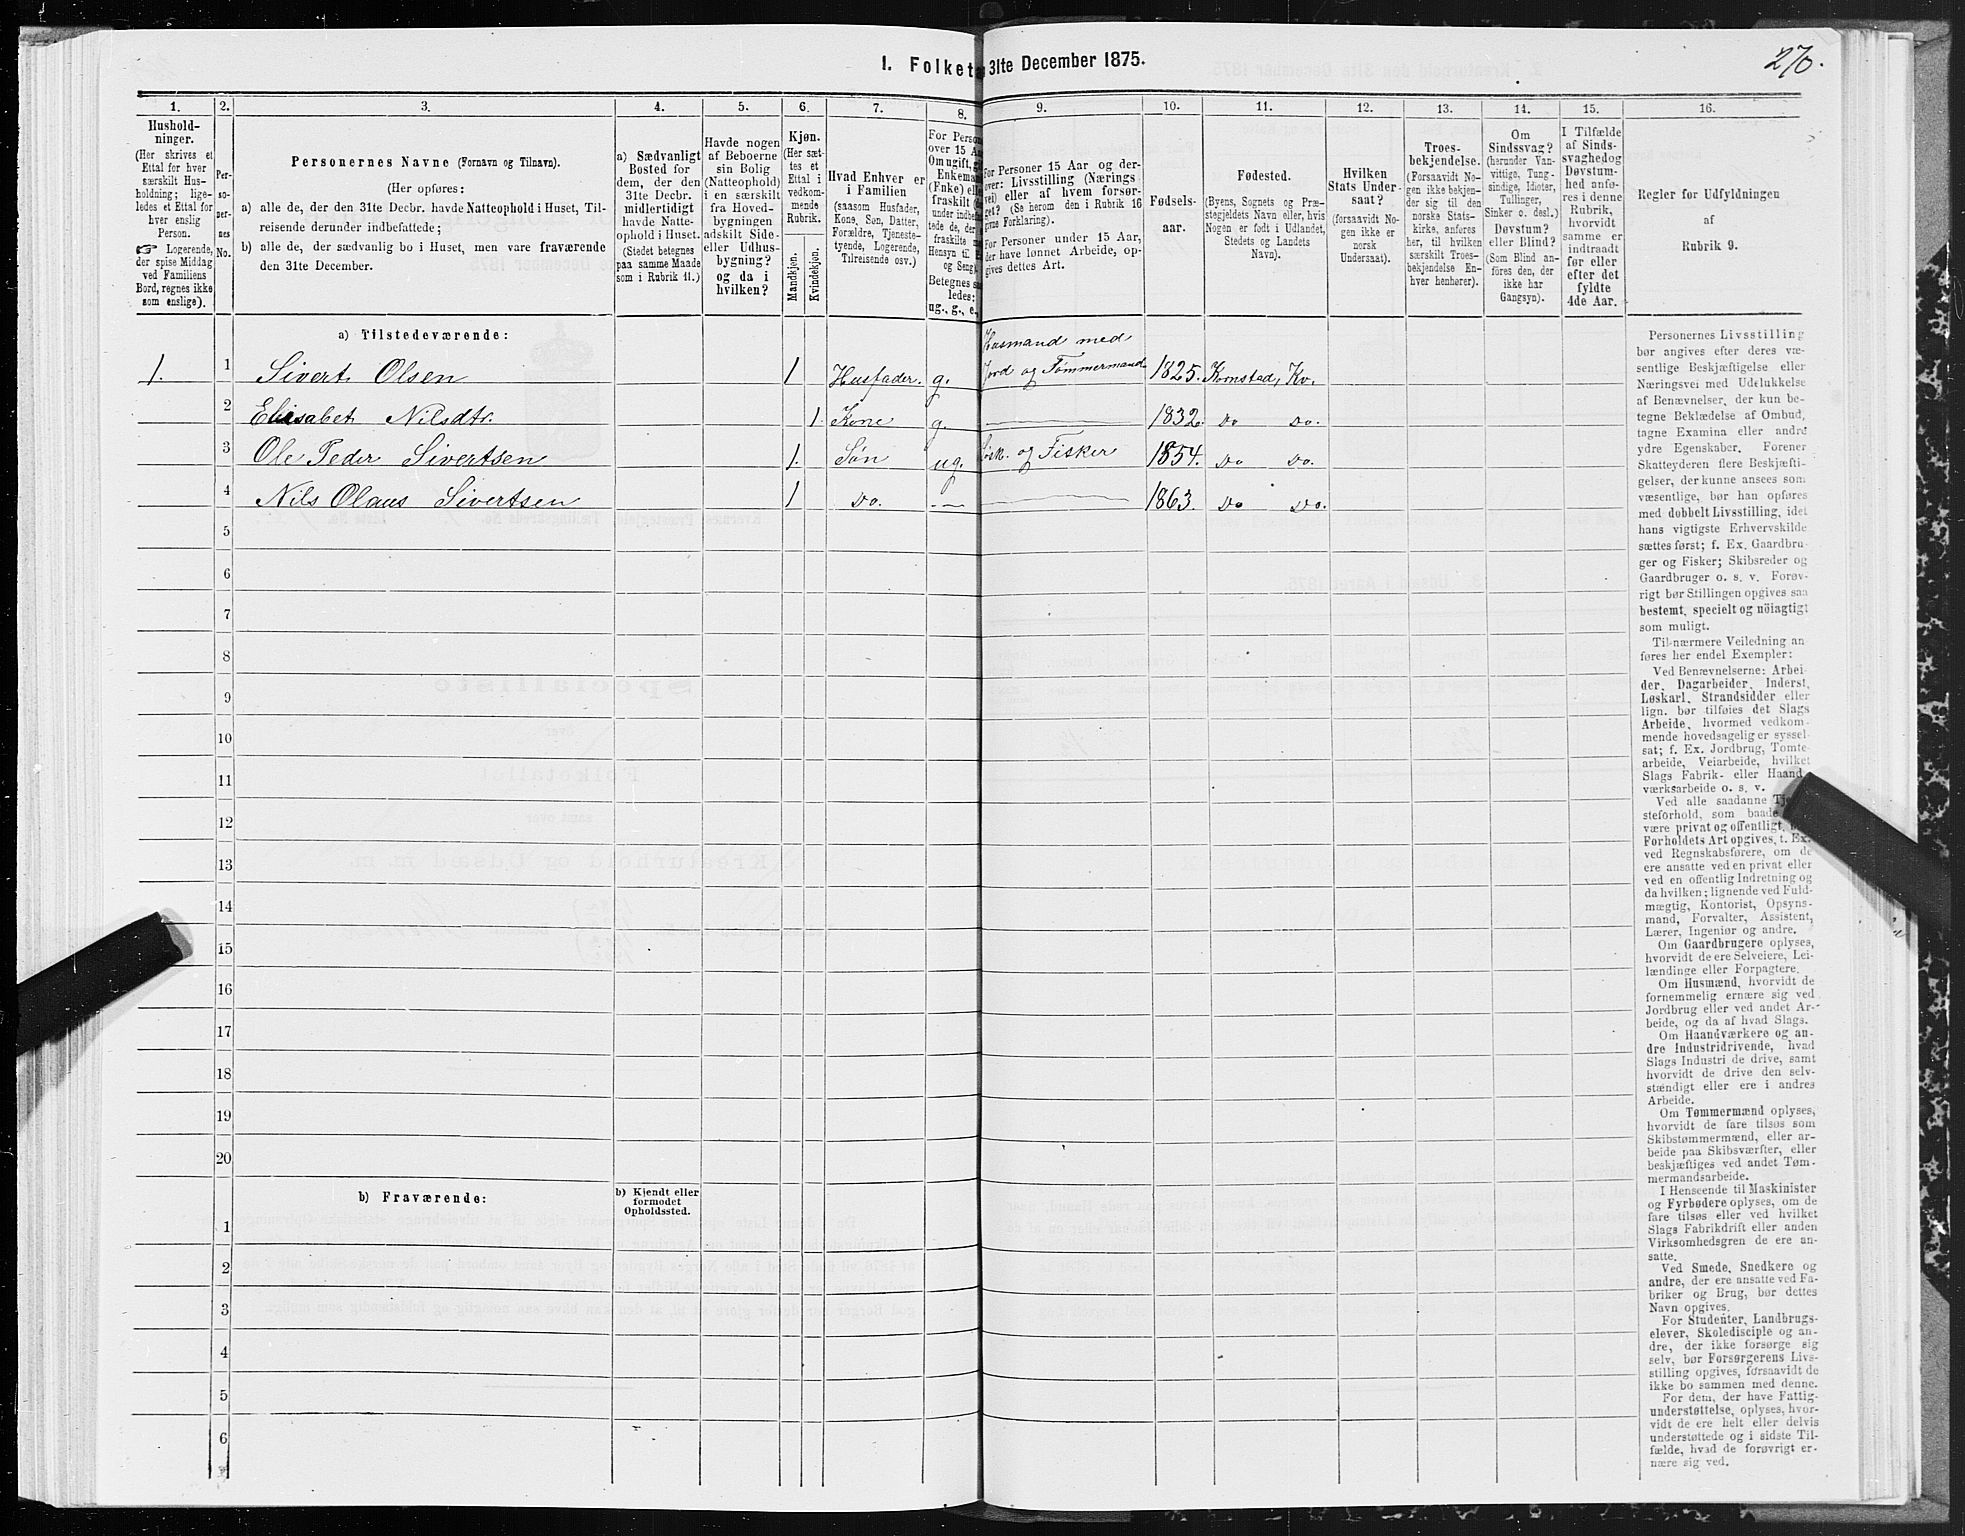 1. Folket 31te December 1875.
270.
1.
2.
3.
4.
5.
6.
7.
8.
9.
10.
11.
12.
13.
14.
15.
16.
Hushold-
ninger.
(Her skrives et
Ettal for hver
særskilt Hus-
holdning; lige-
ledes et Ettal for
hver enslig
Person.
☞ Logerende,
der spise Middag
ved Familiens
Bord, regnes ikke
som enslige).
Per-
so-
ner-
nes
No.
Personernes Navne (Fornavn og Tilnavn).
(Her opføres:
a) alle de, der den 31te Decbr. havde Natteophold i Huset, Til-
reisende derunder indbefattede;
b) alle de, der sædvanlig bo i Huset, men vare fraværende
den 31te December.
a) Sædvanligt
Bosted for
dem, der den
31te Decbr.
midlertidigt
havde Natte-
ophold i Huset.
(Stedet betegnes
paa samme Maade
som i Rubrik 11.)
Havde nogen
af Beboerne
sin Bolig
(Natteophold)
i en særskilt
fra Hoved-
bygningen
adskilt Side-
eller Udhus-
bygning?
og da i
hvilken?
Kjøn.
(Her sæt-
tes et
Ettal i
vedkom-
mende
Rubrik.
Mandkjøn.
Kvindekjøn.
Hvad Enhver er
i Familien
(saasom Husfader,
Kone, Søn, Datter,
Forældre, Tjeneste-
tyende, Logerende,
Tilreisende osv.)
For Perso
over 15 A
Om ugift, g
Enkema
(Enke) el
fraskilt (
under indbe
tede de, der
fraskilte m
Hensyn til
og Seng).
Betegnes s
ledes:
ug., g., e.,
For Personer 15 Aar og der-
over: Livsstilling (Nærings
vei) eller af hvem forsør-
get? (Se herom den i Rubrik 16
givne Forklaring).
For Personer under 15 Aar,
der have lønnet Arbeide, op-
gives dettes Art.
Fødsels-
aar.
Fødested.
(Byens, Sognets og Præ-
stegjeldets Navn eller, hvis
Nogen er født i Udlandet,
Stedets og Landets
Navn).
Hvilken
Stats Under-
saat?
(forsaavidt No-
gen ikke er
norsk
Undersaat).
Troes-
bekjendelse.
(Forsaavidt No-
gen ikke bekjen-
der sig til den
norske Stats-
kirke, anføres
her, til hvilken
særskilt Troes-
bekjendelse En-
hver henhører).
Om
Sindssvag?
(herunder Van-
vittige, Tung-
sindige, Idioter,
Tullinger,
Sinker o. desl.)
Døvstum?
eller Blind?
(Som Blind an-
føres den, der
ikke har
Gangsyn).
I Tilfælde
af Sinds-
svaghedog
Døvstum-
hed anfø-
res i denne
Rubrik,
hvorvidt
samme er
indtraadt
før eller
efter det
fyldte
4de Aar.
Regler for Udfyldningen
af
Rubrik 9.
a) Tilstedeværende:
1. 1 Sivert Olsen 1 Husfader. g. Husmand med
Jord og Tømmermand 1825. Kornstad, Kv.
2 Elisabet Nilsdtr. 1. Kone g. — 1832. Do Do.
3 Ole Peder Sivertsen 1. Søn ug. og Fisker 1854. Do Do.
4 Nils Olaus Sivertsen 1 Do. — — 1863. Do Do.
5
6
7
8
9
10
11
12
13
14
15
16
17
18
19
20
b) Fraværende:
b) Kjendt eller
formodet
Opholdssted.
1
2
3
4
5
6
Personernes Livsstilling
bør angives efter deres væ-
sentlige Beskjæftigelse eller
Næringsvei med Udelukkelse
af Benævnelser, der kun be-
tegne Beklædelse af Ombud,
tagne Examina eller andre
ydre Egenskaber. Forener
Skatteyderen flere Beskjæfti-
gelser, der kunne ansees som
væsentlige, bør han opføres
med dobbelt Livsstilling, idet
hans vigtigste Erhvervskilde
sættes først; f. Ex. Gaardbru-
ger og Fisker; Skibsreder og
Gaardbruger o. s. v. Forøv-
rigt bør Stillingen opgives saa
bestemt, specielt og nöiagtigt
som muligt.
Til nærmere Veiledning an
føres her endel Exempler:
Ved Benævnelserne: Arbei-
der, Dagarbeider, Inderst,
Løskarl, Strandsidder eller
lign. bør tilføies det Slags
Arbeide, hvormed vedkom-
mende hovedsagelig er syssel-
sat; f. Ex. Jordbrug, Tomte-
arbeide, Veiarbeide, hvilket
Slags Fabrik- eller Haand-
værksarbeide o. s. v.
Ved alle saadanne Tje
steforhold, som baade
være privat og offentligt,
Forholdets Art opgives, t. Ex.
ved Regnskabsførere, om de
ere ansatte ved en privat eller
ved en offentlig Indretning og
da hvilken; lignende ved Fuld-
mægtig, Kontorist, Opsyns-
mand, Forvalter, Assistent,
Lærer, Ingeniør og andre.
Om Gaardbrugere oplyses,
hvorvidt de ere Selveiere, Lei-
lændinge eller Forpagtere.
Om Husmænd, hvorvidt de
fornemmelig ernære sig ved
Jordbrug eller ved andet Ar-
beide, og da af hvad Slags.
Om Haandværkere og an-
dre Industridrivende, hvad
Slags Industri de drive, samt
hvorvidt de drive den selv-
stændigt eller ere i andres
Arbeide.
Om Tømmermænd oplyses,
hvorvidt de fare tilsøs som
Skibstømmermænd, eller ar-
beide paa Skibsværfter, eller
beskjæftiges ved andet Tøm-
mermandsarbeide.
I Henseende til Maskinister
og Fyrbødere oplyses, om de
fare tilsøs eller ved hvilket
Slags Fabrikdrift eller anden
Virksomhedsgren de ere an-
satte.
Ved Smede, Snedkere og
andre, der ere ansatte ved Fa-
briker og Brug, bør dettes
Navn opgives.
For Studenter, Landbrugs-
elever, Skoledisciple og an-
dre, der ikke forsørge sig
selv, bør Forsørgerens Livs-
stilling opgives, forsaavidt de
ikke bo sammen med denne.
For dem, der have Fattig-
understøttelse, oplyses, hvor-
vidt de ere helt eller delvis
understøttede og i sidste Til-
fælde, hvad de forøvrigt er-
nære sig ved.